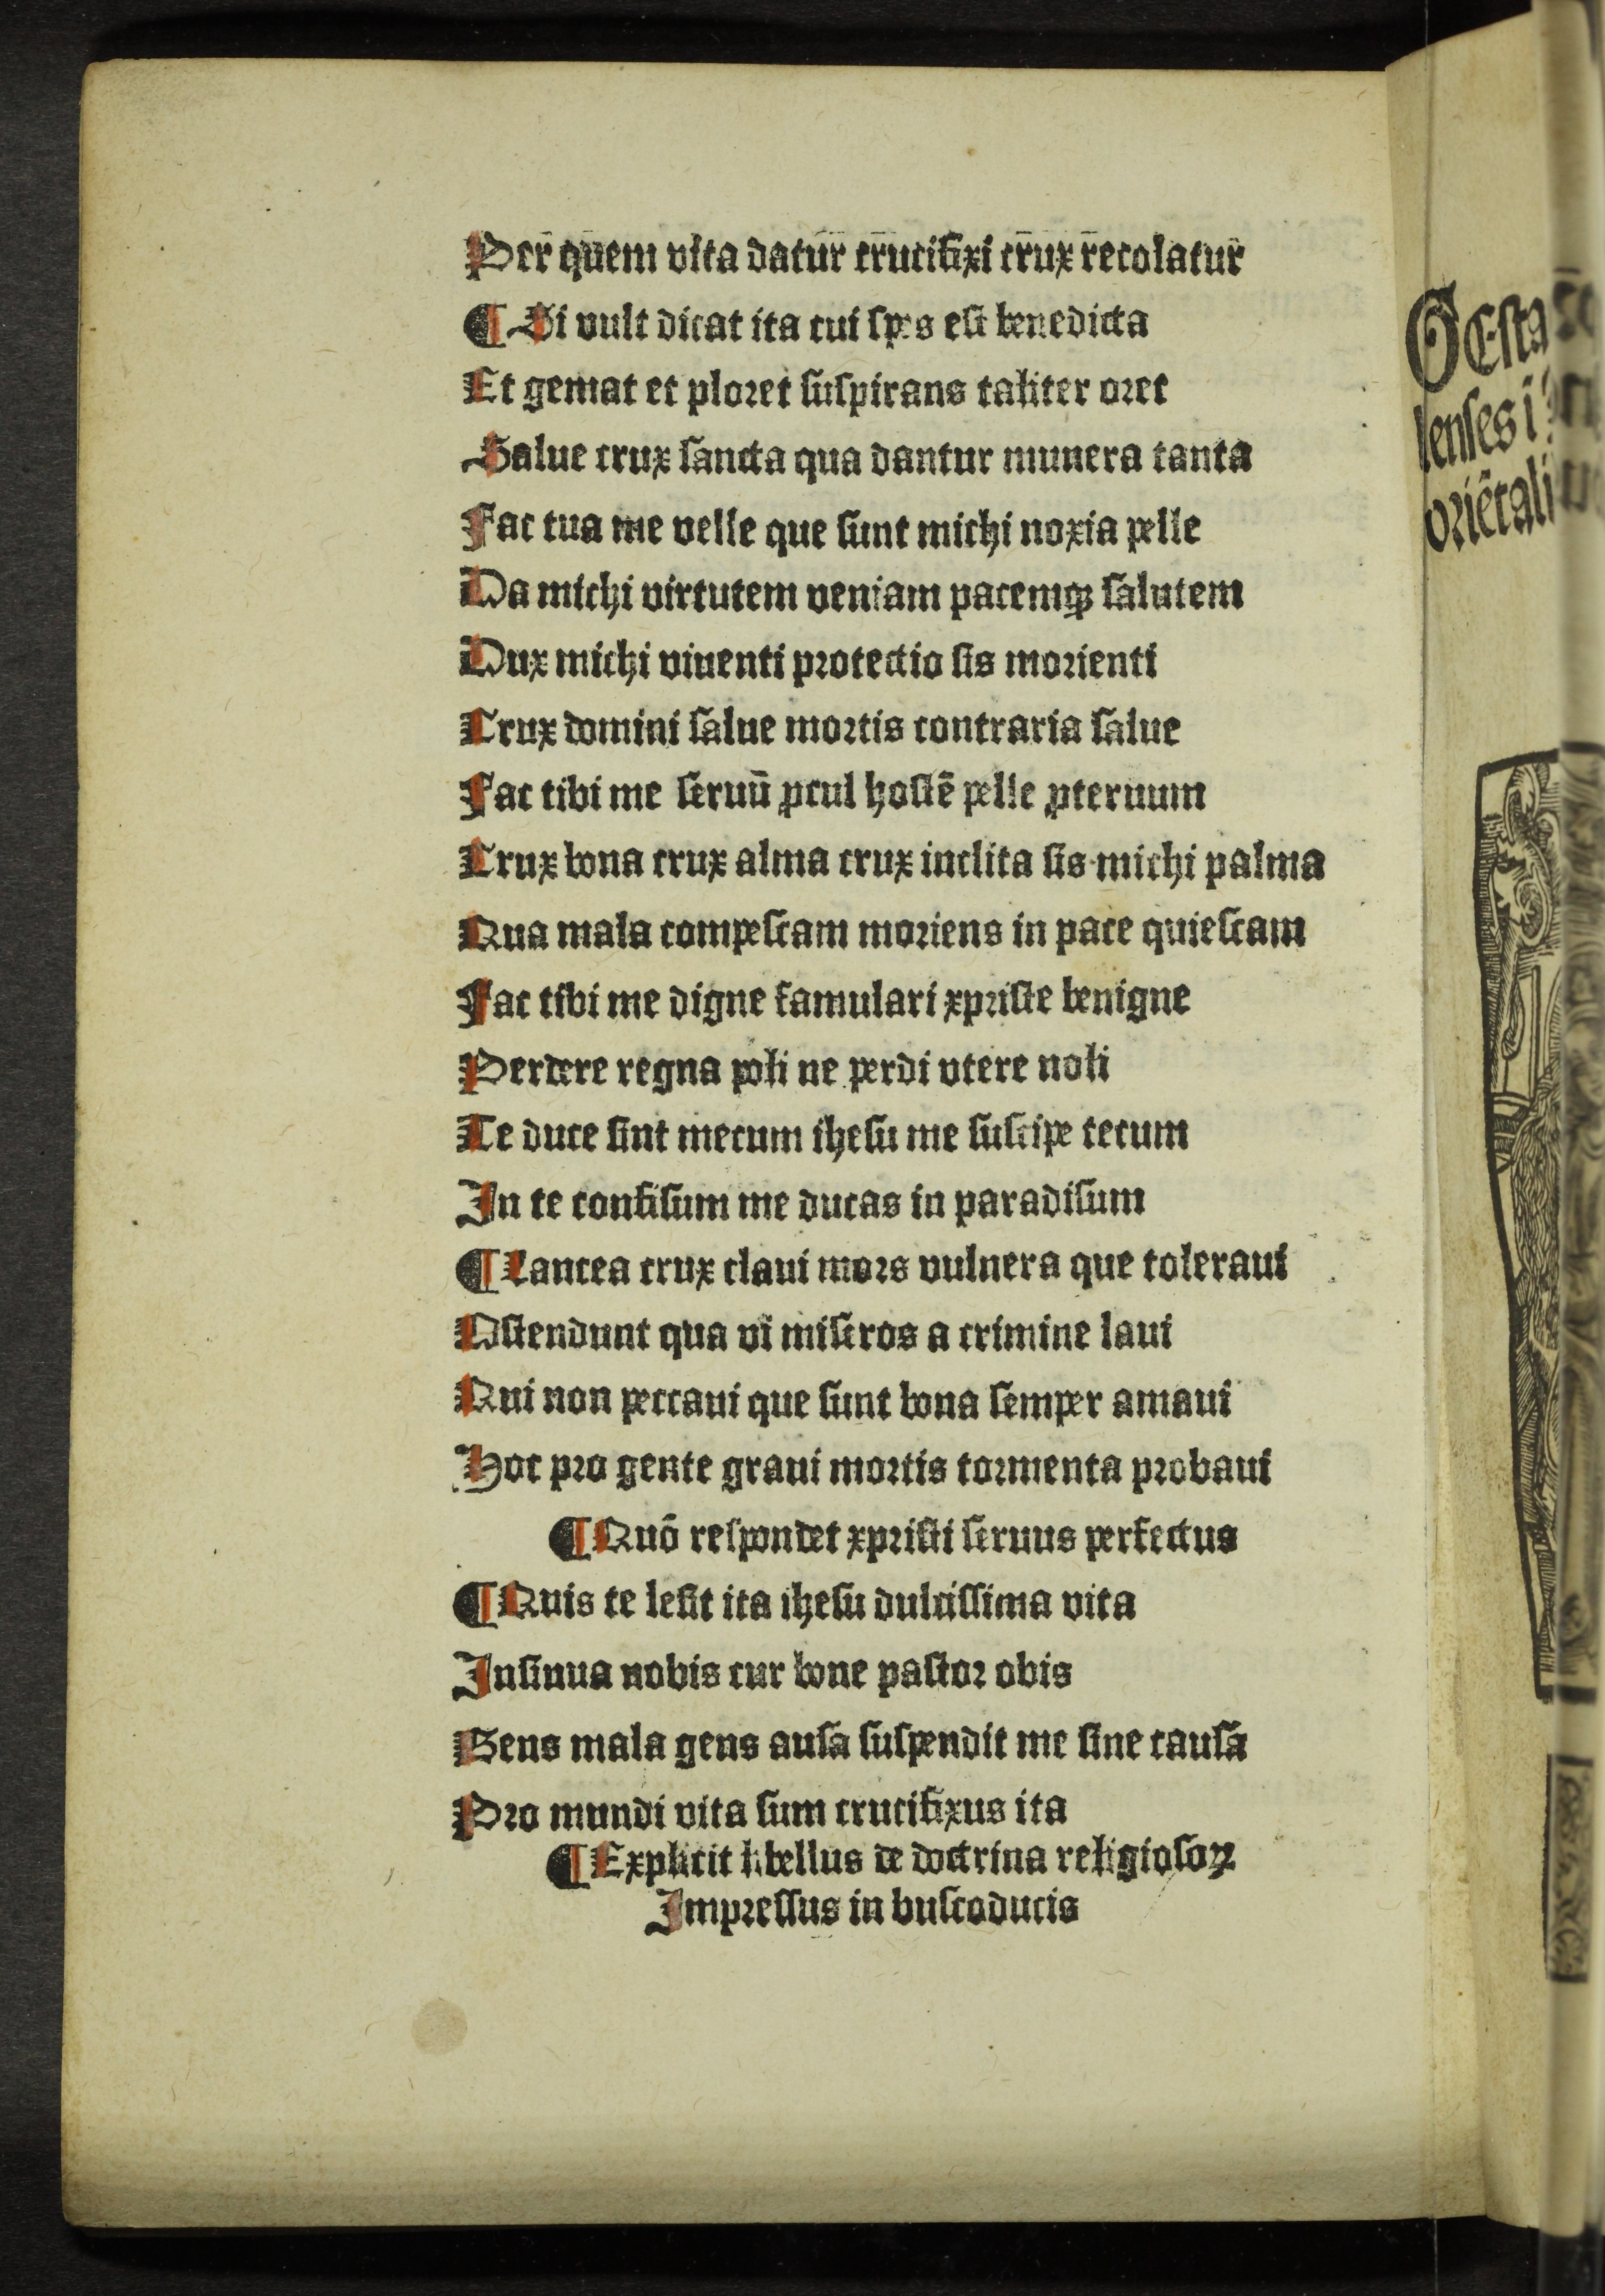 Per̄ qūem vita datur̄ cr̄ucifixi cr̄ux r̄ecolatur̄
¶ Si vult dicat ita cui spes est benedicta
Et gemat et ploret suspirans taliter oret
Salue crux sancta qua dantur munera tanta
Fac tua me velle que sunt michi noxia pelle
Da michi virtutem veniam pacemqꝫ salutem
Dux michi viuenti protectio sis morienti
Crux domini salue mortis contraria salue
Fac tibi me seruū ꝓcul hostē pelle ꝓteruum
Crux bona crux alma crux inclita sis michi palma
Qua mala compescam moriens in pace quiescam
Fac tibi me digne famulari xpriste benigne
Perdere regna poli ne perdi vtere noli
Te duce sint mecum ihesu me suscipe tecum
In te confisum me ducas in paradisum
¶ Lancea crux claui mors vulnera que toleraui
Ostendunt qua vi miseros a crimine laui
Qui non peccaui que sunt bona semper amaui
Hoc pro gente graui mortis tormenta probaui
¶ Quō respondet xpristi seruus perfectus
¶ Quis te lesit ita ihesu dulcissima vita
Insinua nobis cur bone pastor obis
Gens mala gens ausa suspendit me sine causa
Pro mundi vita sum crucifixus ita
¶ Explicit libellus de doctrina religiosoꝝ
Impressus in buscoducis
GEsta
lenses i
oriētali